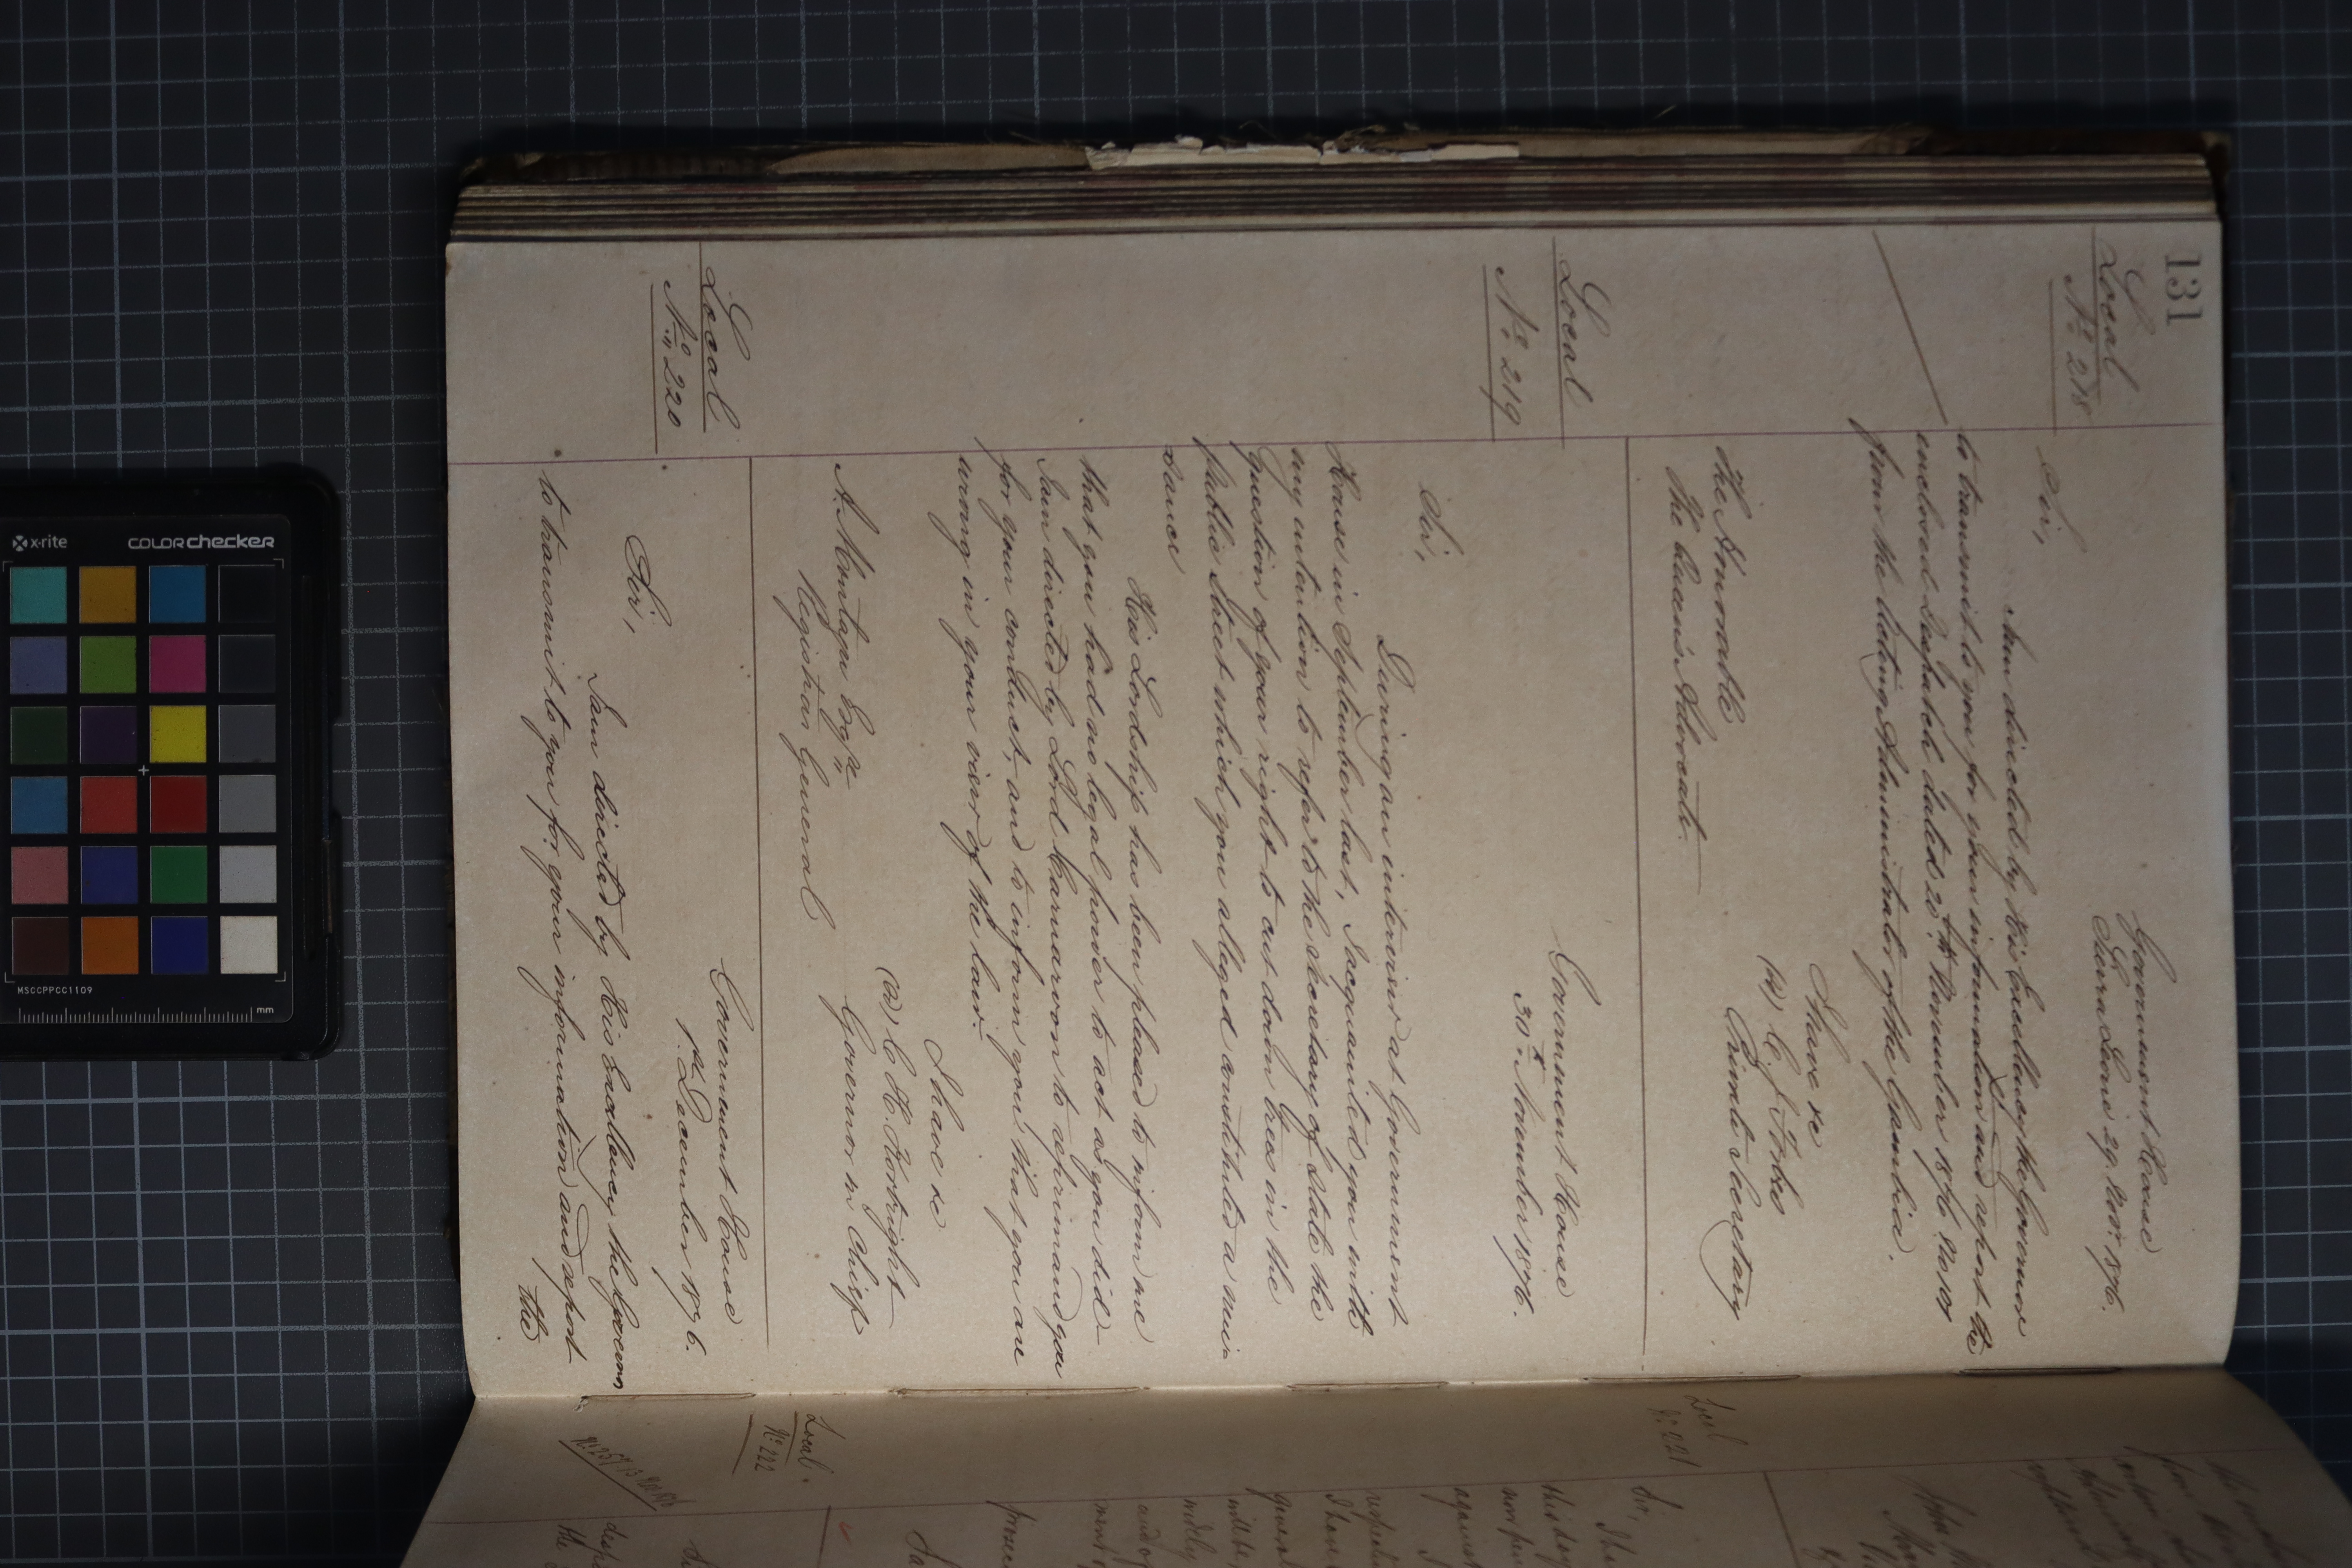 131
Local
No. 218
Government House
Sierra Leone 29. Novr. 1876.
Sir,
I am directed by His Excellency the Governor
to transmit to you for your information and report the
enclosed Despatch dated 20th November 1876 No 101
from the Acting Administrator of the Gambia.
I have &c
C. J. Forbes
Private Secretary
The Honorable
The Queen's Advocate.
Local
No. 219
Government House
30th November 1876.
Sir,
During an interview at Government
House in September last, I acquainted you with
my intention to refer to the Secretary of State the
Question of your right to cut down trees in the
Public Street which you alleged constituted a nui-
sance
His Lordship has been pleased to inform me
that you had no legal power to act as you did
I am directed by Lord Carnarvon to reprimand you
for your conduct, and to inform you that you are
wrong in your view of the law.
I have &c
C. H. Kortright
Governor in Chief
A. Montagu Esqre
Registrar General
Local
No. 220
Government House
1st December 1876.
Sir,
I am directed by His Excellency the Governor
to transmit to you for your information and report
the
Local
No. 221
Sir,
this day
against
Local.
No. 222
x-rite
colorchecker
MSCCPPCC1109
mm